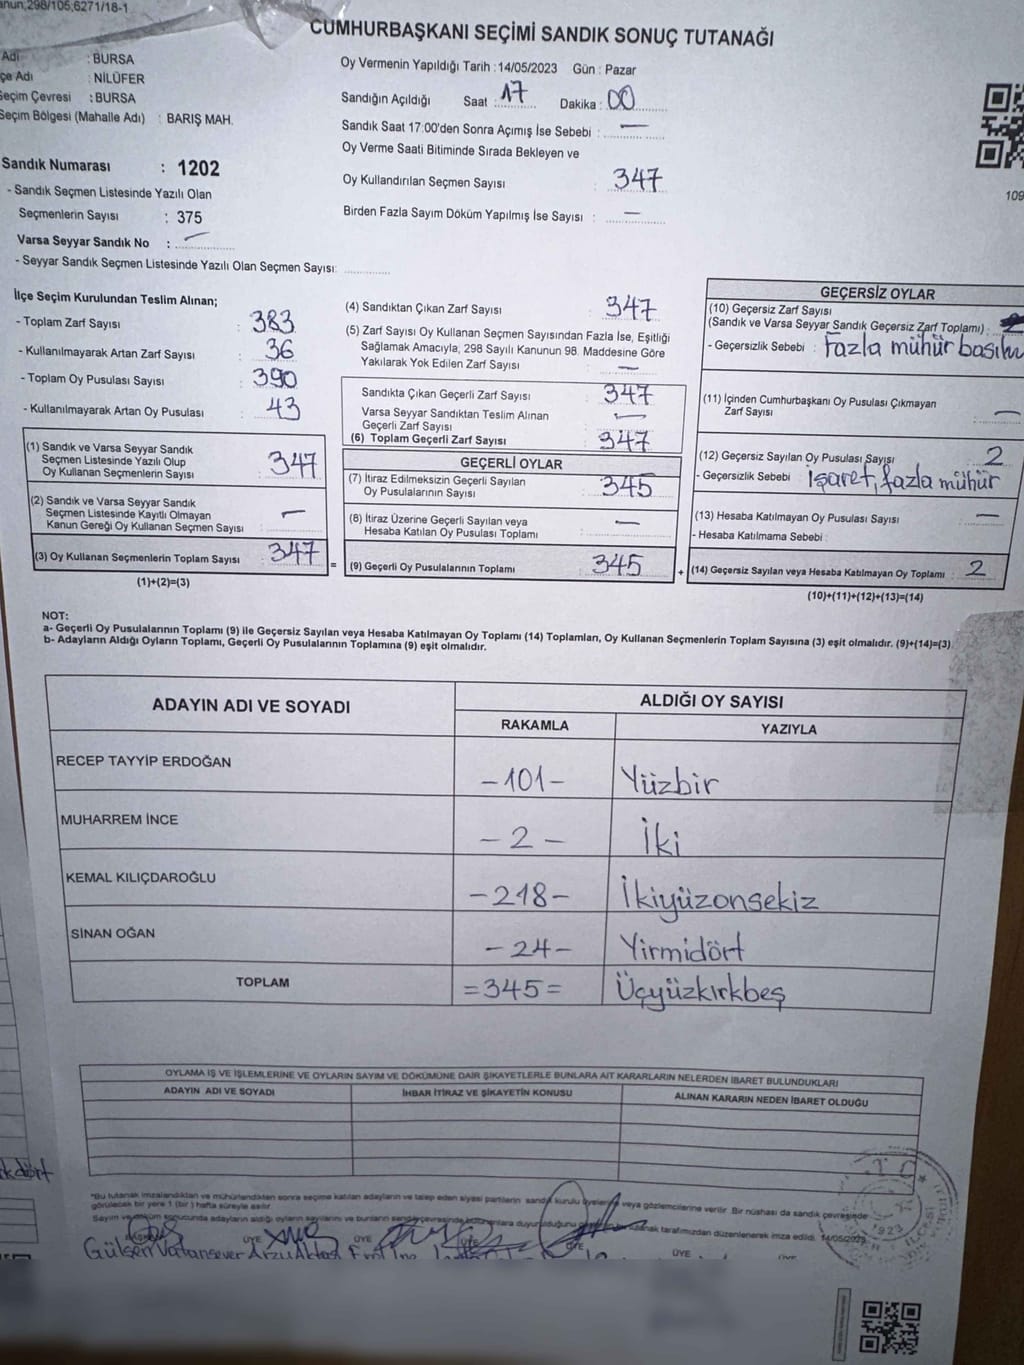 CUMHURBAŞKANI SEÇİMİ SANDIK SONUÇ TUTANAĞI
: BURSA
: NİLÜFER
Seçim Çevresi : BURSA
Seçim Bölgesi (Mahalle Adı) : BARIŞ MAH.
Sandık Numarası : 1202
- Sandık Seçmen Listesinde Yazılı Olan
Seçmenlerin Sayısı : 375
Varsa Seyyar Sandık No : —
- Seyyar Sandık Seçmen Listesinde Yazılı Olan Seçmen Sayısı:
Oy Vermenin Yapıldığı Tarih : 14/05/2023 Gün : Pazar
Sandığın Açıldığı Saat : 17 Dakika : 00
Sandık Saat 17:00'den Sonra Açımış İse Sebebi : —
Oy Verme Saati Bitiminde Sırada Bekleyen ve
Oy Kullandırılan Seçmen Sayısı : 347
Birden Fazla Sayım Döküm Yapılmış İse Sayısı : —
109
İlçe Seçim Kurulundan Teslim Alınan;
- Toplam Zarf Sayısı : 383
- Kullanılmayarak Artan Zarf Sayısı : 36
- Toplam Oy Pusulası Sayısı : 390
- Kullanılmayarak Artan Oy Pusulası : 43
(1) Sandık ve Varsa Seyyar Sandık
Seçmen Listesinde Yazılı Olup
Oy Kullanan Seçmenlerin Sayısı : 347
(2) Sandık ve Varsa Seyyar Sandık
Seçmen Listesinde Kayıtlı Olmayan
Kanun Gereği Oy Kullanan Seçmen Sayısı : —
(3) Oy Kullanan Seçmenlerin Toplam Sayısı : 347
(1)+(2)=(3)
=
(4) Sandıktan Çıkan Zarf Sayısı : 347
(5) Zarf Sayısı Oy Kullanan Seçmen Sayısından Fazla İse, Eşitliği
Sağlamak Amacıyla, 298 Sayılı Kanunun 98. Maddesine Göre
Yakılarak Yok Edilen Zarf Sayısı : —
Sandıkta Çıkan Geçerli Zarf Sayısı : 347
Varsa Seyyar Sandıktan Teslim Alınan
Geçerli Zarf Sayısı : —
(6) Toplam Geçerli Zarf Sayısı : 347
GEÇERLİ OYLAR
(7) İtiraz Edilmeksizin Geçerli Sayılan
Oy Pusulalarının Sayısı : 345
(8) İtiraz Üzerine Geçerli Sayılan veya
Hesaba Katılan Oy Pusulası Toplamı : —
(9) Geçerli Oy Pusulalarının Toplamı : 345
+
GEÇERSİZ OYLAR
(10) Geçersiz Zarf Sayısı
(Sandık ve Varsa Seyyar Sandık Geçersiz Zarf Toplamı) :
- Geçersizlik Sebebi : Fazla mühür
(11) İçinden Cumhurbaşkanı Oy Pusulası Çıkmayan
Zarf Sayısı : —
(12) Geçersiz Sayılan Oy Pusulası Sayısı : 2
- Geçersizlik Sebebi : İşaret, fazla mühür
(13) Hesaba Katılmayan Oy Pusulası Sayısı : —
- Hesaba Katılmama Sebebi :
(14) Geçersiz Sayılan veya Hesaba Katılmayan Oy Toplamı : 2
(10)+(11)+(12)+(13)=(14)
NOT:
a- Geçerli Oy Pusulalarının Toplamı (9) ile Geçersiz Sayılan veya Hesaba Katılmayan Oy Toplamı (14) Toplamları, Oy Kullanan Seçmenlerin Toplam Sayısına (3) eşit olmalıdır. (9)+(14)=(3)
b- Adayların Aldığı Oyların Toplamı, Geçerli Oy Pusulalarının Toplamına (9) eşit olmalıdır.
ADAYIN ADI VE SOYADI ALDIĞI OY SAYISI
RAKAMLA YAZIYLA
RECEP TAYYİP ERDOĞAN -101- Yüzbir
MUHARREM İNCE -2- İki
KEMAL KILIÇDAROĞLU -218- İkiyüzonsekiz
SİNAN OĞAN -24- Yirmidört
TOPLAM =345= Üçyüzkırkbeş
OYLAMA İŞ VE İŞLEMLERİNE VE OYLARIN SAYIM VE DÖKÜMÜNE DAİR ŞİKAYETLERLE BUNLARA AİT KARARLARIN NELERDEN İBARET BULUNDUKLARI
ADAYIN ADI VE SOYADI İHBAR İTİRAZ VE ŞİKAYETİN KONUSU ALINAN KARARIN NEDEN İBARET OLDUĞU
*Bu tutanak imzalandıktan ve mühürlendikten sonra seçime katılan adayların ve talep eden siyasi partilerin sandık kurulu üyelerine veya gözlemcilerine verilir. Bir nüshası da sandık çevresinde
görülecek bir yere 1 (bir) hafta süreyle asılır.
tarafımızdan düzenlenerek imza edildi. 14/05/2023
ÜYE ÜYE ÜYE ÜYE ÜYE
Gülşen Vatansever Arzu Aktaş
T.C.
1923